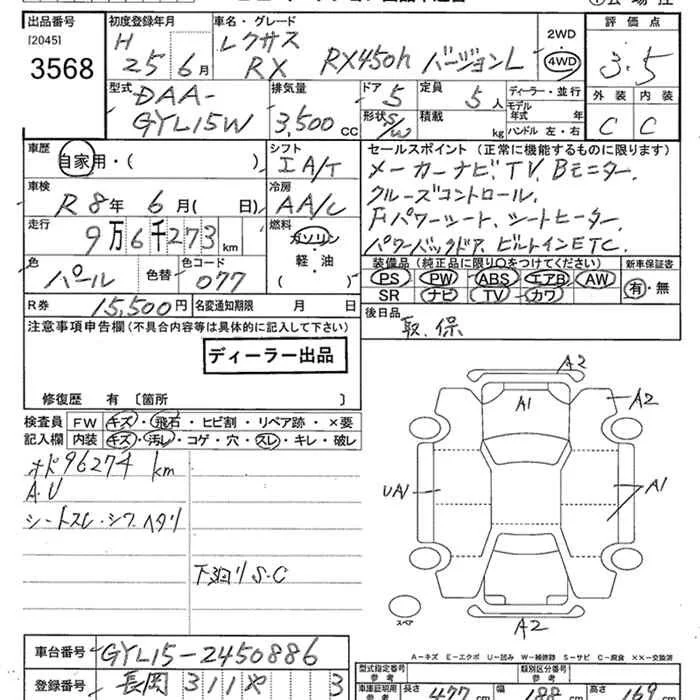 出品番号 初度登録年月 車名・グレード 2WD 評価点
[2045] H レクサス
3568 25年6月 RX RX450h バージョンL 4WD 3.5
型式 排気量 ドア 定員 ディーラー・並行 外装 内装
DAA- 5 5人 モデル
年式 年
GYL15W 3,500cc 形状 S/W 積載 kg ハンドル 左・右 C C
車歴 シフト セールスポイント (正常に機能するものに限ります)
自家用・( ) IA/T メーカーナビ、TV、Bモニター、
車検 冷房 クルーズコントロール、
R8年 6月( 日) AA/C Fパワーシート、シートヒーター、
走行 燃料 パワーバックドア、ビルトインETC、
9万6千273km ガソリン
色 色替 色コード 軽・油 装備品 (純正品に限り○をつけてください) 新車保証書
パール 077 ( ) PS PW ABS エアB AW 有・無
R券 15,500円 名変通知期限 月 日 SR ナビ TV カワ
注意事項申告欄(不具合内容等は具体的に記入して下さい) 後日品
取、保
ディーラー出品
修復歴 有 〔箇所 〕
検査員 FW キズ・飛石・ヒビ割・リペア跡・×要
記入欄 内装 キズ・汚レ・コゲ・穴・スレ・キレ・破レ
オド96274km
A.U
シートスレ・シワ、ヘタリ
下廻りS・C
A2
A1 A2
UA1 A1
スペア
A2
A－キズ E－エクボ U－凹み W－補修跡 S－サビ C－腐食 ××－交換済
車台番号 GYL15-2450886
型式指定番号 参考 類別区分番号 参考
登録番号 長岡 311 3
車庫証明用 参考 長さ 477cm 幅 188cm 高さ 169cm